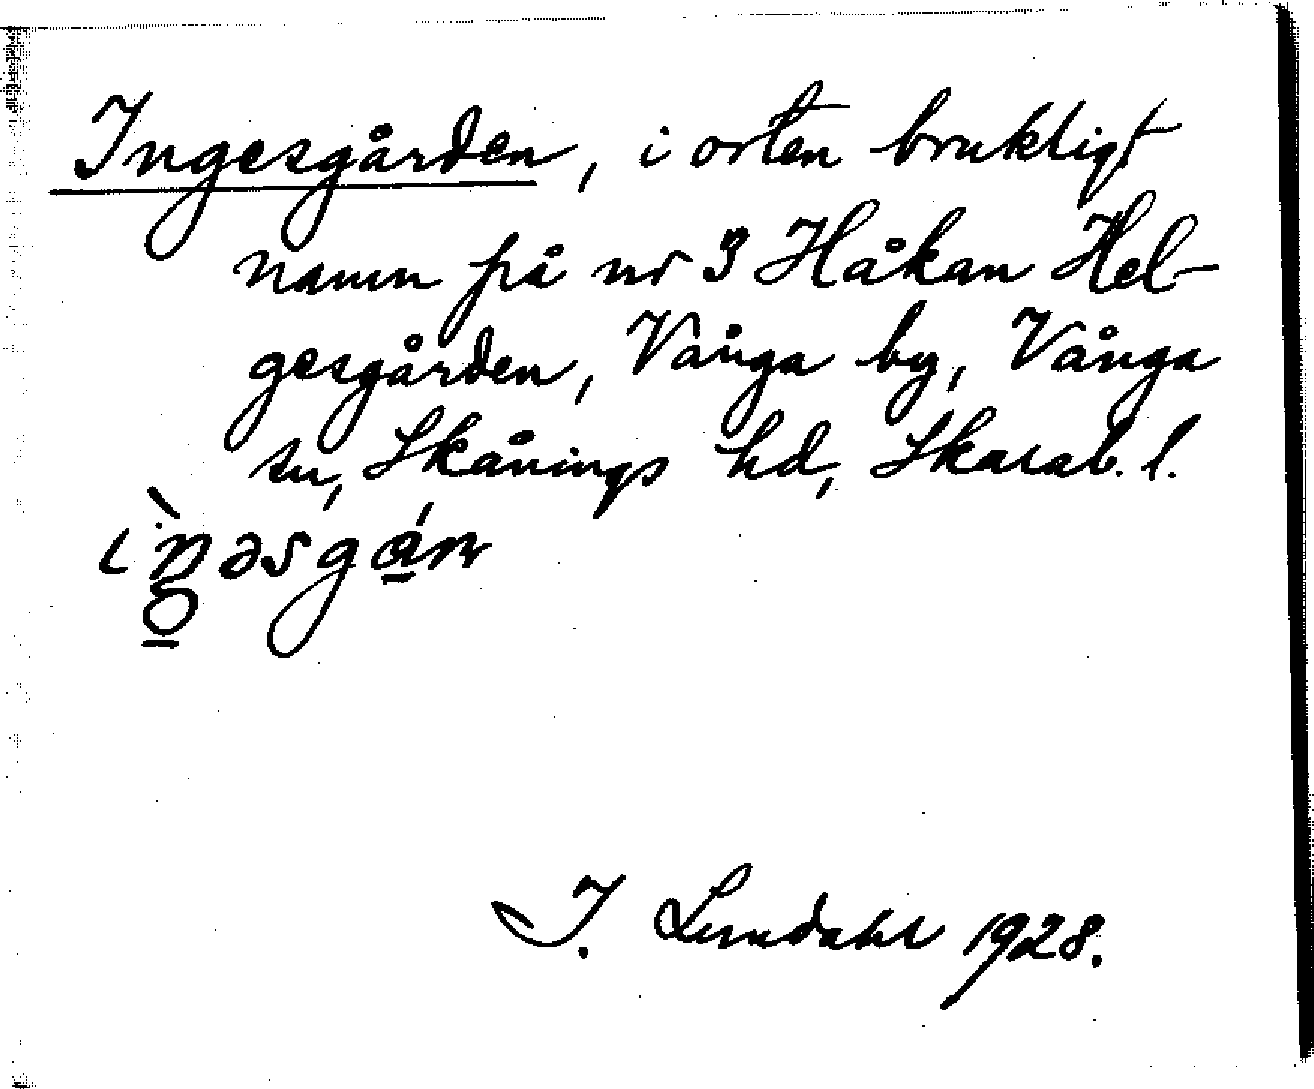 Ingesgården, i orten brukligt
namn på nr 3 Håkan Hel-
gesgården, Vånga by, Vånga
sn, Skånings hd, Skarab. l.
J. Lindahl 1928.